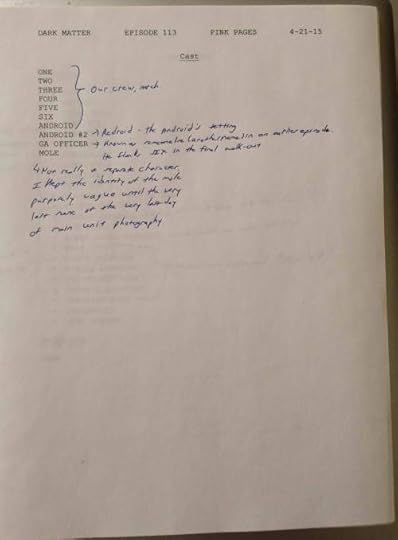 DARK MATTER EPISODE 113 PINK PAGES 4-21-15
Cast
ONE
TWO
THREE
FOUR
FIVE
SIX
ANDROID
Our crew, natch
ANDROID #2 → Android - the android's
GA OFFICER → Known as in an earlier episode.
He flanks SIX in the final walk-out
MOLE
↳ Not really a separate character,
I kept the identity of the mole
purposely vague until the very
last scene of the very last day
of main unit photography